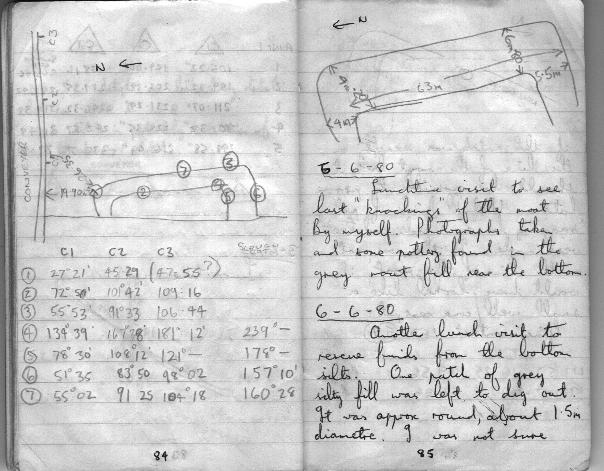 C3
N ←
CONVEYER
③
⑦
②
④
①
⑤
⑥
19.90m
C1 C2 C3
① 27°21' 45·29 (47·55?)
② 72°50' 101°42' 109:16
③ 55°53' 91°33 106·44
④ 134°39' 167°28' 181°12' 239°—
⑤ 78°30' 108°12' 121°— 178°—
⑥ 51°35 83°50 98°02 157°10'
⑦ 55°02 91 25 104°18 160°28
84
← N
6m80
5.5m
63m
4m
5-6-80
Lunchtime visit to see
last "knockings" of the moat
by myself. Photographs taken
and some pottery found in the
grey moat fill near the bottom.
6-6-80
Another lunch visit to
rescue finds from the bottom
silts. One patch of grey
silty fill was left to dig out.
It was approx round, about 1.5m
diametre. I was not sure
85